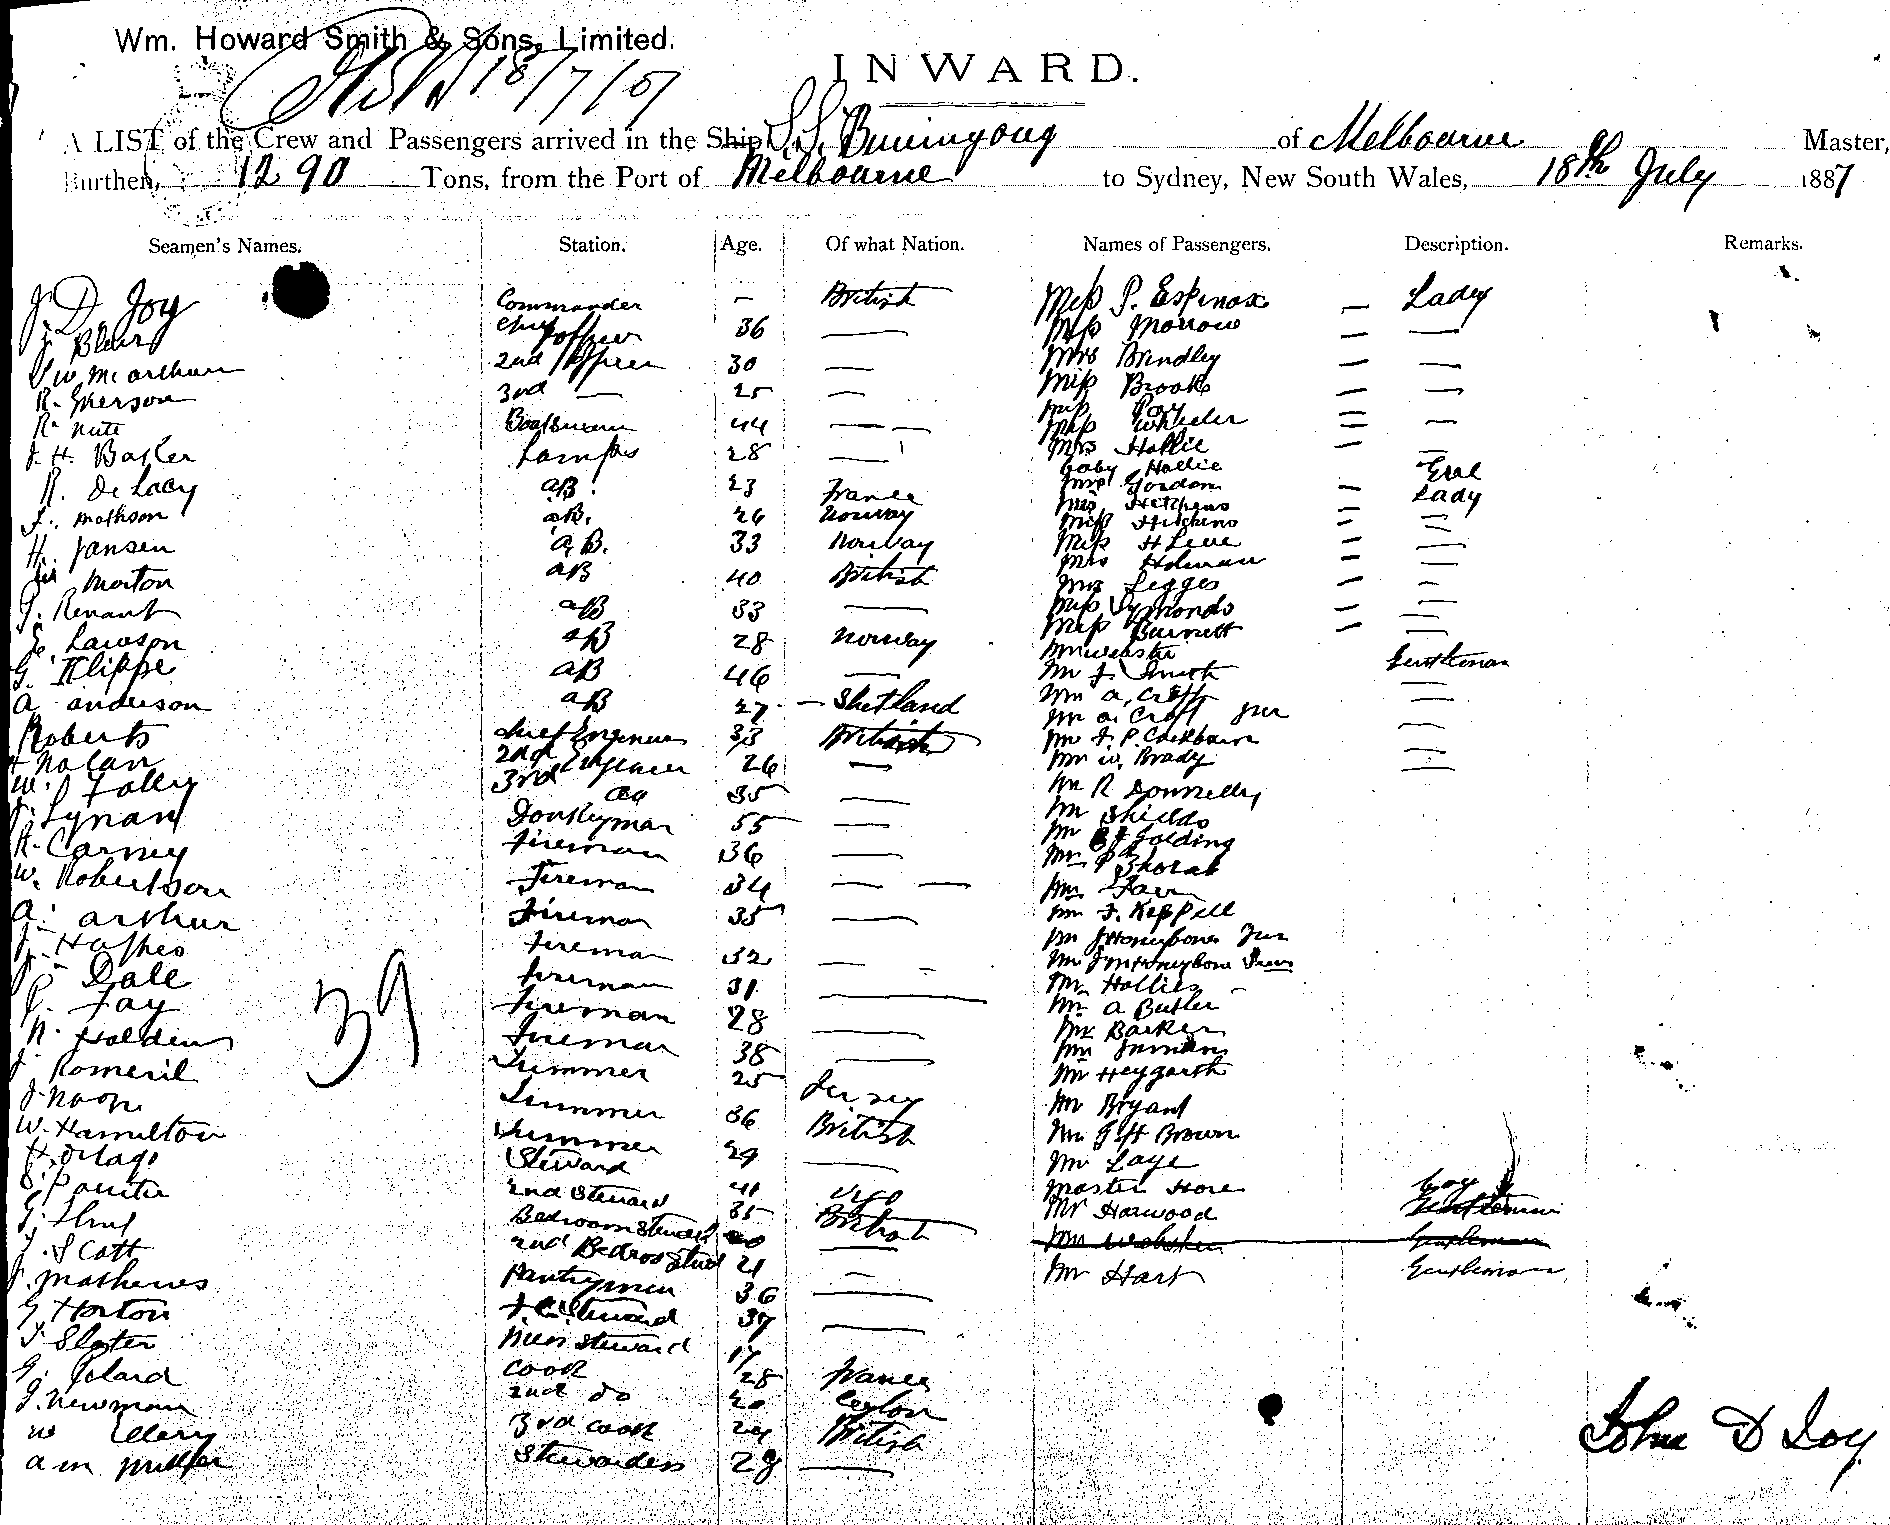 Wm. Howard Smith & Sons, Limited.
18/7/87
INWARD.
A LIST of the Crew and Passengers arrived in the Ship S.S. Buninyong of Melbourne Master,
Burthen, 1290 Tons, from the Port of Melbourne to Sydney, New South Wales, 18th July 1887
Seamen's Names. Station. Age. Of what Nation. Names of Passengers. Description. Remarks.
J. D. Joy Commander — British Miss P. Espinose — Lady
J. Blair Chief officer 36 — Miss Morrow — —
J W McArthur 2nd Officer 30 — Mrs Brindley — —
R. 3rd — 25 — Miss Brooks — —
R. Nute Boatswain 44 — — Miss — —
Miss Wheeler — —
J. H. Baker Lamps 28 — Mrs Hollie — —
baby Hollie
R. De Lacy AB. 23 France Gordon — Lady
J. Mathson AB. 26 Norway Mrs Hitchens — —
Miss Hitchens — —
H. Jansen A.B. 33 Norway Miss H Leue — —
Morton AB 40 British Mrs Holman — —
Mrs Legges — —
J. Renant AB 33 — Miss Symonds — —
E. Lawson AB 28 Norway Miss Burnett — —
G. Klippe AB 46 — Mr J. Smith Gentleman
A anderson AB 27 — Shetland Mr A. Croft —
Mr A. Croft Jnr —
Roberts Chief Engineer 33 British Mr J. P. Cockburn —
Nolan 2nd Engineer 26 — Mr W. Brady —
W. Folley 3rd do 35 — Mr R Donnelly
J. Lynan Donkeyman 55 — Mr Shields
R. Carney Fireman 36 — Mr Golding
W. Robertson Fireman 34 — — Mr
A. Arthur Fireman 35 — Mr F. Keppell
J. Hughes Fireman 32 — Mr J Honeybone Jur
Mr J M Honeybone Senr
P. Dale Fireman 31 — Mr Hollies
J. Fay Fireman 28 — Mr A Butler
N. Holden Fireman 38 — Mr Barker
39
Mr Inman
J Romeril Trimmer 25 Jersey Mr Heygarth
J Noon Trimmer 36 British Mr Bryant
W. Hamilton Trimmer 29 — Mr Brown
Steward 41 Mr Laye
2nd Steward 35 British Master Hore boy
Bedroom Steward — Mr Harwood Gentleman
J. Scott 2nd Bedroo Stwd 21 — Mr Webster Gentleman
J. Mathews Pantryman 36 — Mr Hart Gentleman
G Horton F.C. Steward 37 —
J Slater Mess Steward 17
G. Jolard Cook 28 France
J. Newman 2nd do 20 Ceylon
W Ellery 3rd cook 24 British
A M Miller Stewardess 28 —
John D Joy